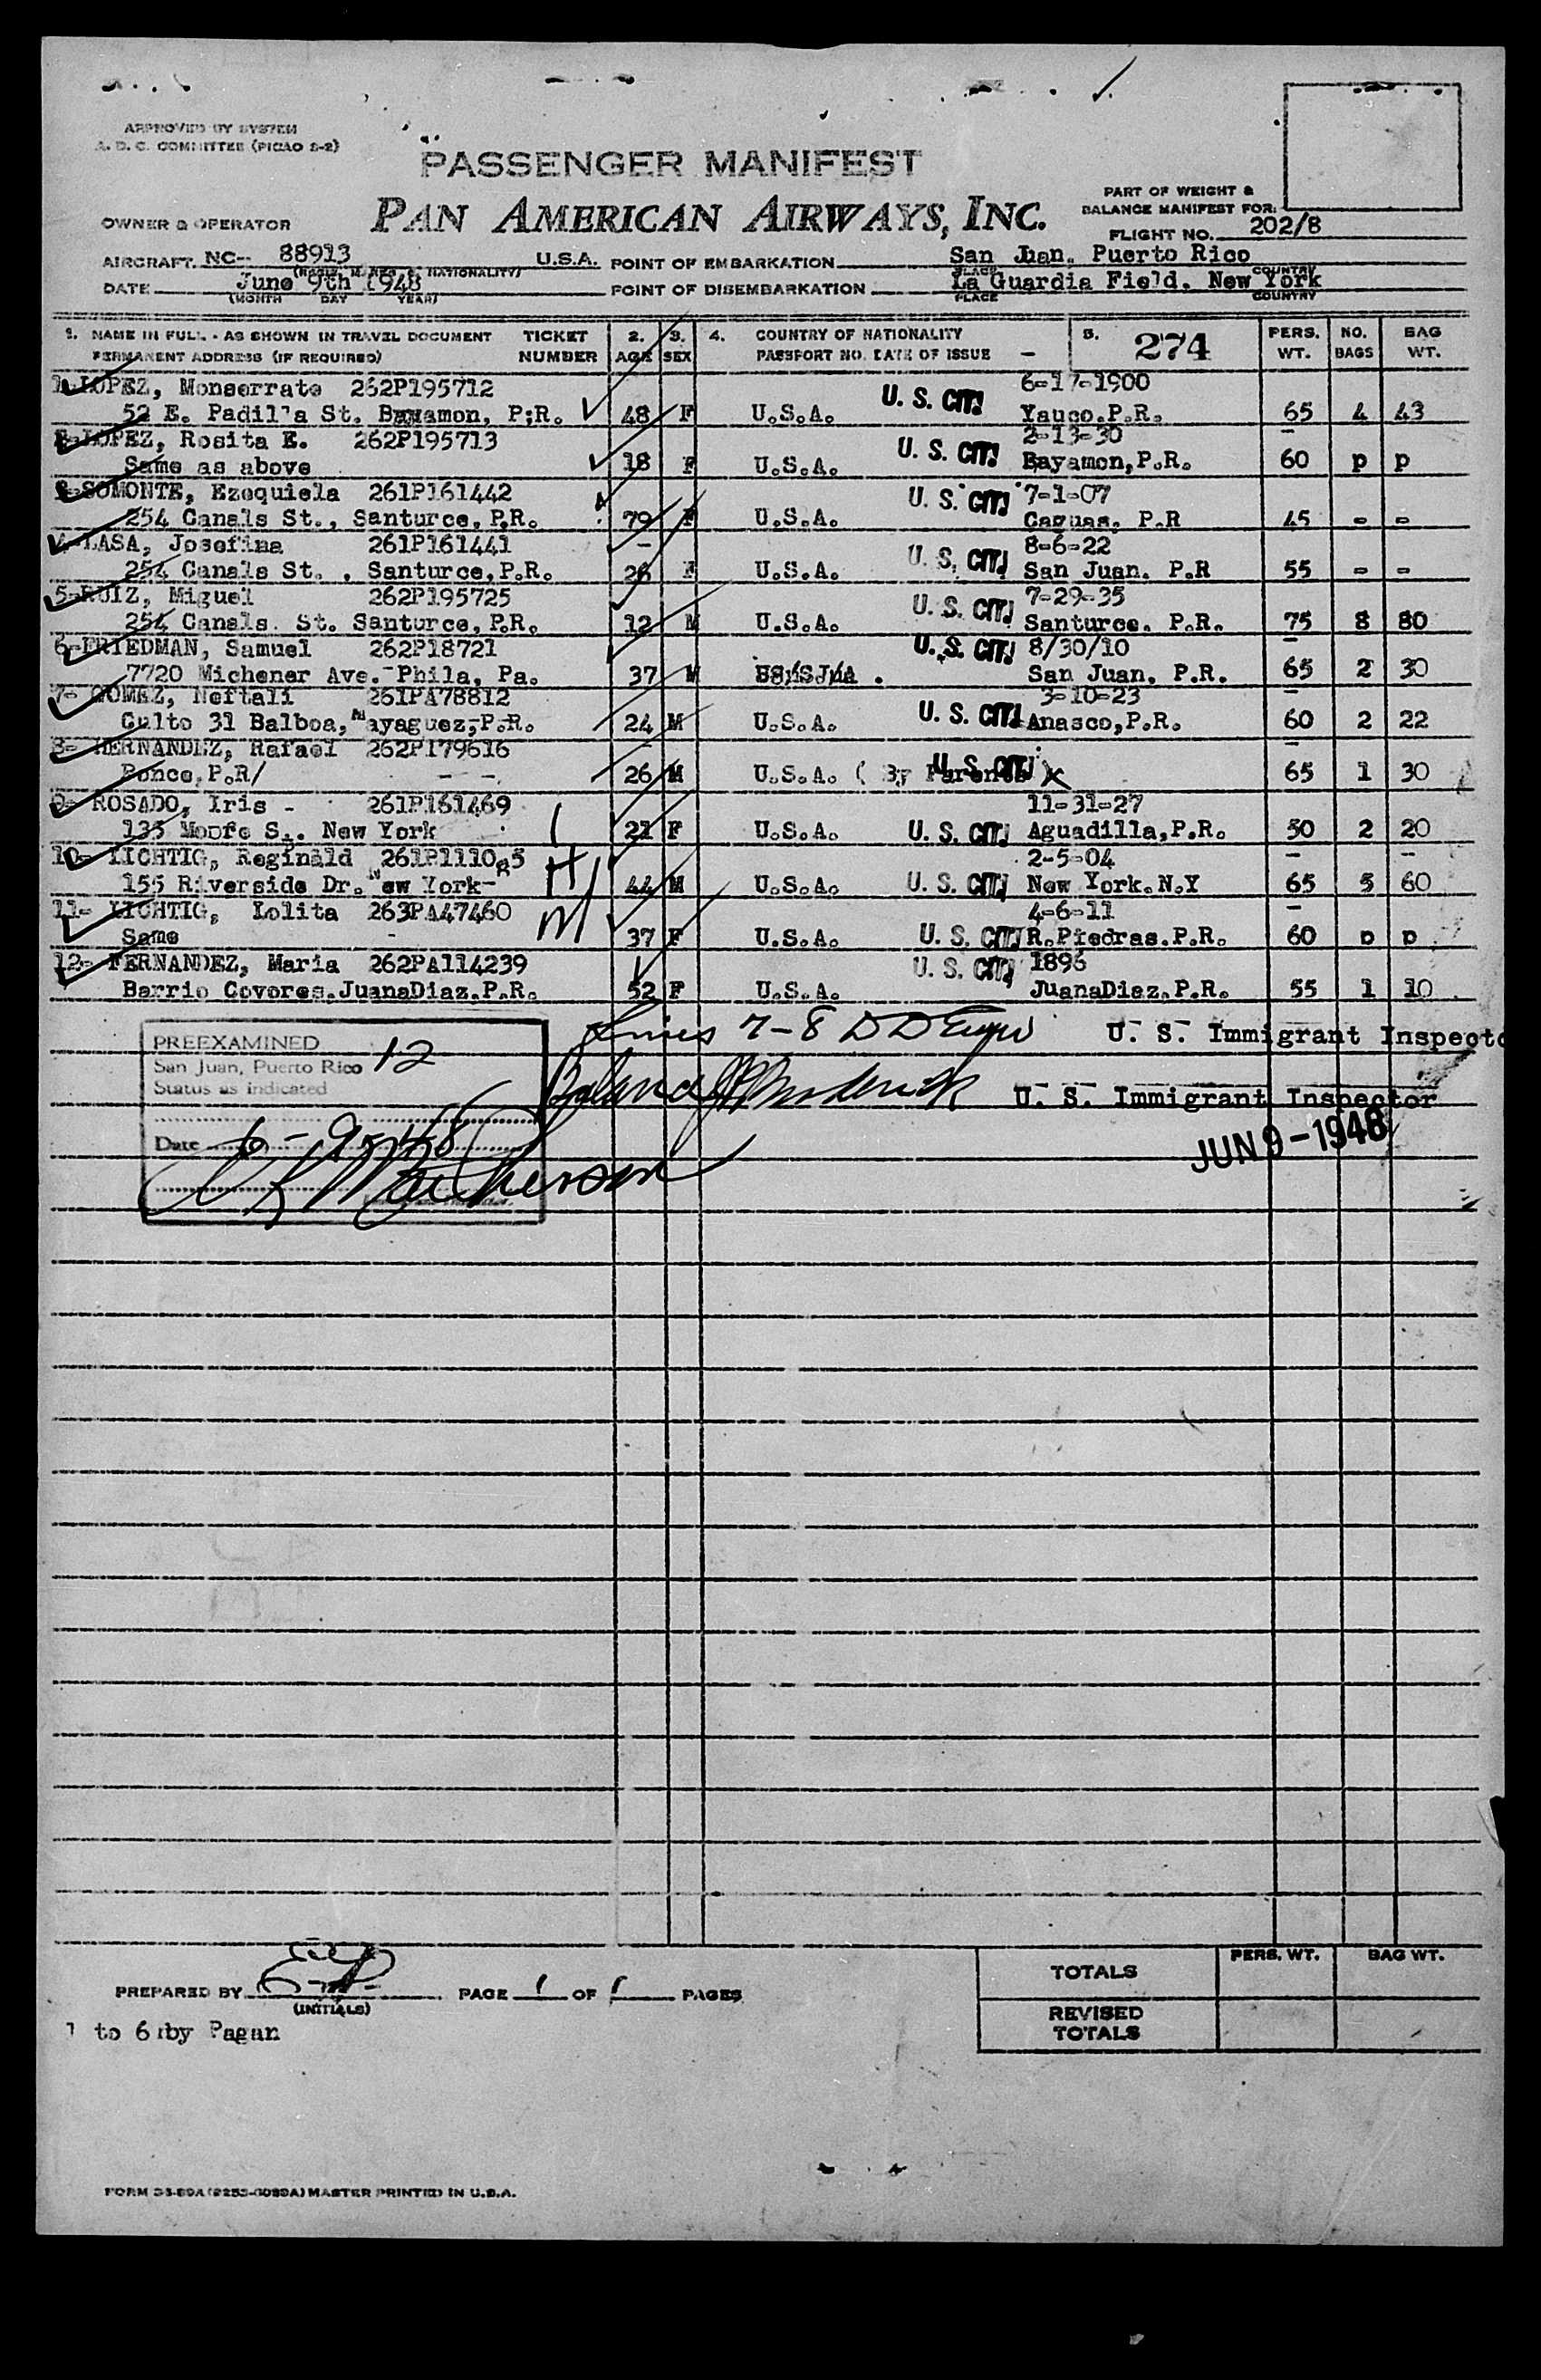 APPROVED BY SYSTEM
A. D. C. COMMITTEE (PICAO S-2)
PASSENGER MANIFEST
PART OF WEIGHT &
BALANCE MANIFEST FOR:
OWNER & OPERATOR PAN AMERICAN AIRWAYS, INC.
FLIGHT NO. 202/8
AIRCRAFT. NC-- 88913 U.S.A. POINT OF EMBARKATION San Juan, Puerto Rico
DATE June 9th 1948 POINT OF DISEMBARKATION La Guardia Field, New York
(MONTH DAY YEAR) PLACE COUNTRY
1. NAME IN FULL - AS SHOWN IN TRAVEL DOCUMENT TICKET 2. 3. 4. COUNTRY OF NATIONALITY 5. 274 PERS. NO. BAG
PERMANENT ADDRESS (IF REQUIRED) NUMBER AGE SEX PASSPORT NO. DATE OF ISSUE WT. BAGS WT.
1-LOPEZ, Monserrate 262P195712 6-17-1900
52 E. Padilla St. Bayamon, P;R. 48 F U.S.A. U. S. CIT. Yauco.P.R. 65 4 43
2-LOPEZ, Rosita E. 262P195713 2-13-30
Same as above 18 F U.S.A. U. S. CIT. Bayamon,P.R. 60 p p
3-SOMONTE, Ezequiela 261P161442 7-1-07
254 Canals St., Santurce,P.R. 79 F U.S.A. U. S. CIT. Caguas. P.R 45 - -
4-LASA, Josefina 261P161441 8-6-22
254 Canals St. , Santurce,P.R. 26 F U.S.A. U. S. CIT. San Juan. P.R 55 - -
5-RUIZ, Miguel 262P195725 7-29-35
254 Canals. St. Santurce,P.R. 12 M U.S.A. U. S. CIT. Santurce. P.R. 75 8 80
6-FRIEDMAN, Samuel 262P18721 U. S. CIT. 8/30/10
7720 Michener Ave. Phila, Pa. 37 M San Juan, P.R. 65 2 30
7- GOMEZ, Neftali 261PA78812 3-10-23
Culto 31 Balboa, Mayaguez,P.R. 24 M U.S.A. U. S. CIT. Anasco,P.R. 60 2 22
8- HERNANDEZ, Rafael 262P179616
Ponce,P.R/ 26 M U.S.A. ( By Parents ) U. S. CIT. 65 1 30
9- ROSADO, Iris - 261P161469 11-31-27
New York 21 F U.S.A. U. S. CIT. Aguadilla,P.R. 50 2 20
10- LICHTIG, Reginald 2-5-04
155 Riverside Dr. New York 44 M U.S.A. U. S. CIT. New York.N.Y 65 5 60
11- LICHTIG, Lolita 263PA47460 4-6-11
Same 37 F U.S.A. U. S. CIT. R.Piedras.P.R. 60 p p
12- FERNANDEZ, Maria 262PA114239 U. S. CIT. 1896
Barrio Covores.JuanaDiaz.P.R. 52 F U.S.A. JuanaDiaz.P.R. 55 1 10
Lines 7-8 U. S. Immigrant Inspecto
PREEXAMINED
San Juan, Puerto Rico 12
Status as indicated
Balance U. S. Immigrant Inspector
Date 6-9-48
JUN 9-1948
PERS. WT. BAG WT.
TOTALS
PREPARED BY PAGE 1 OF 1 PAGES
(INITIALS)
REVISED
TOTALS
1 to 6 by Pagan
MASTER PRINTED IN U.S.A.